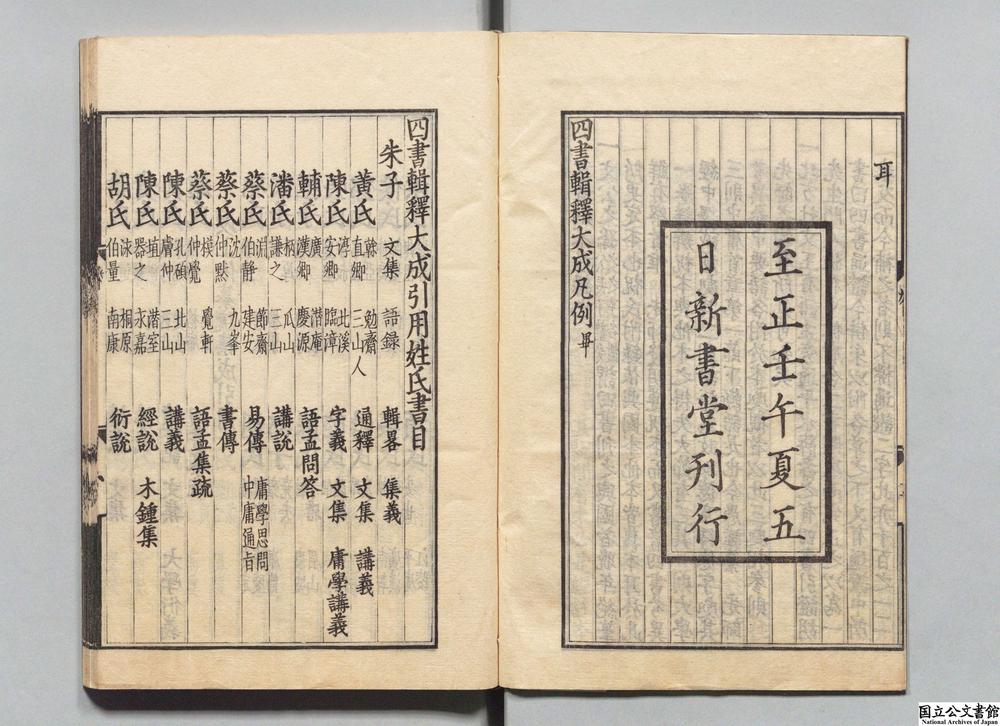 耳
至正壬午夏五
日新書堂刊行
四書輯釋大成凡例 畢
四書輯釋大成引用姓氏書目
朱子 文集 語錄 輯畧 集義
黃氏 榦 直卿 勉齋 三山人 通釋 文集 講義
陳氏 淳 安卿 北溪 臨漳 字義 文集 庸學講義
輔氏 廣 漢卿 潜庵 慶源 語孟問答
潘氏 柄 謙之 瓜山 三山 講說
蔡氏 淵 伯靜 節齋 建安 易傳 庸學思問 中庸通旨
蔡氏 沈 仲默 九峯 書傳
蔡氏 模 仲覺 覺軒 語孟集疏
陳氏 孔碩 膚仲 北山 三山 講義
陳氏 埴 器之 潜室 永嘉 經說 木鍾集
胡氏 泳 伯量 桐原 南康 衍說
国立公文書館
National Archives of Japan